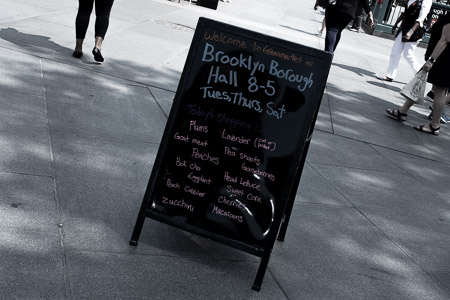 Welcome to Greenmarket at
Brooklyn Borough
Hall 8-5
Tues, Thurs, Sat
Today's Shopping
Plums
Lavender (cut
Goat meat
Pea Shoots
Peaches
Gooseberries
Bok choi
Head Lettuce
Eggplant
Sweet Corn
Peach Cobbler
Cherries
Zucchini
Macaroons